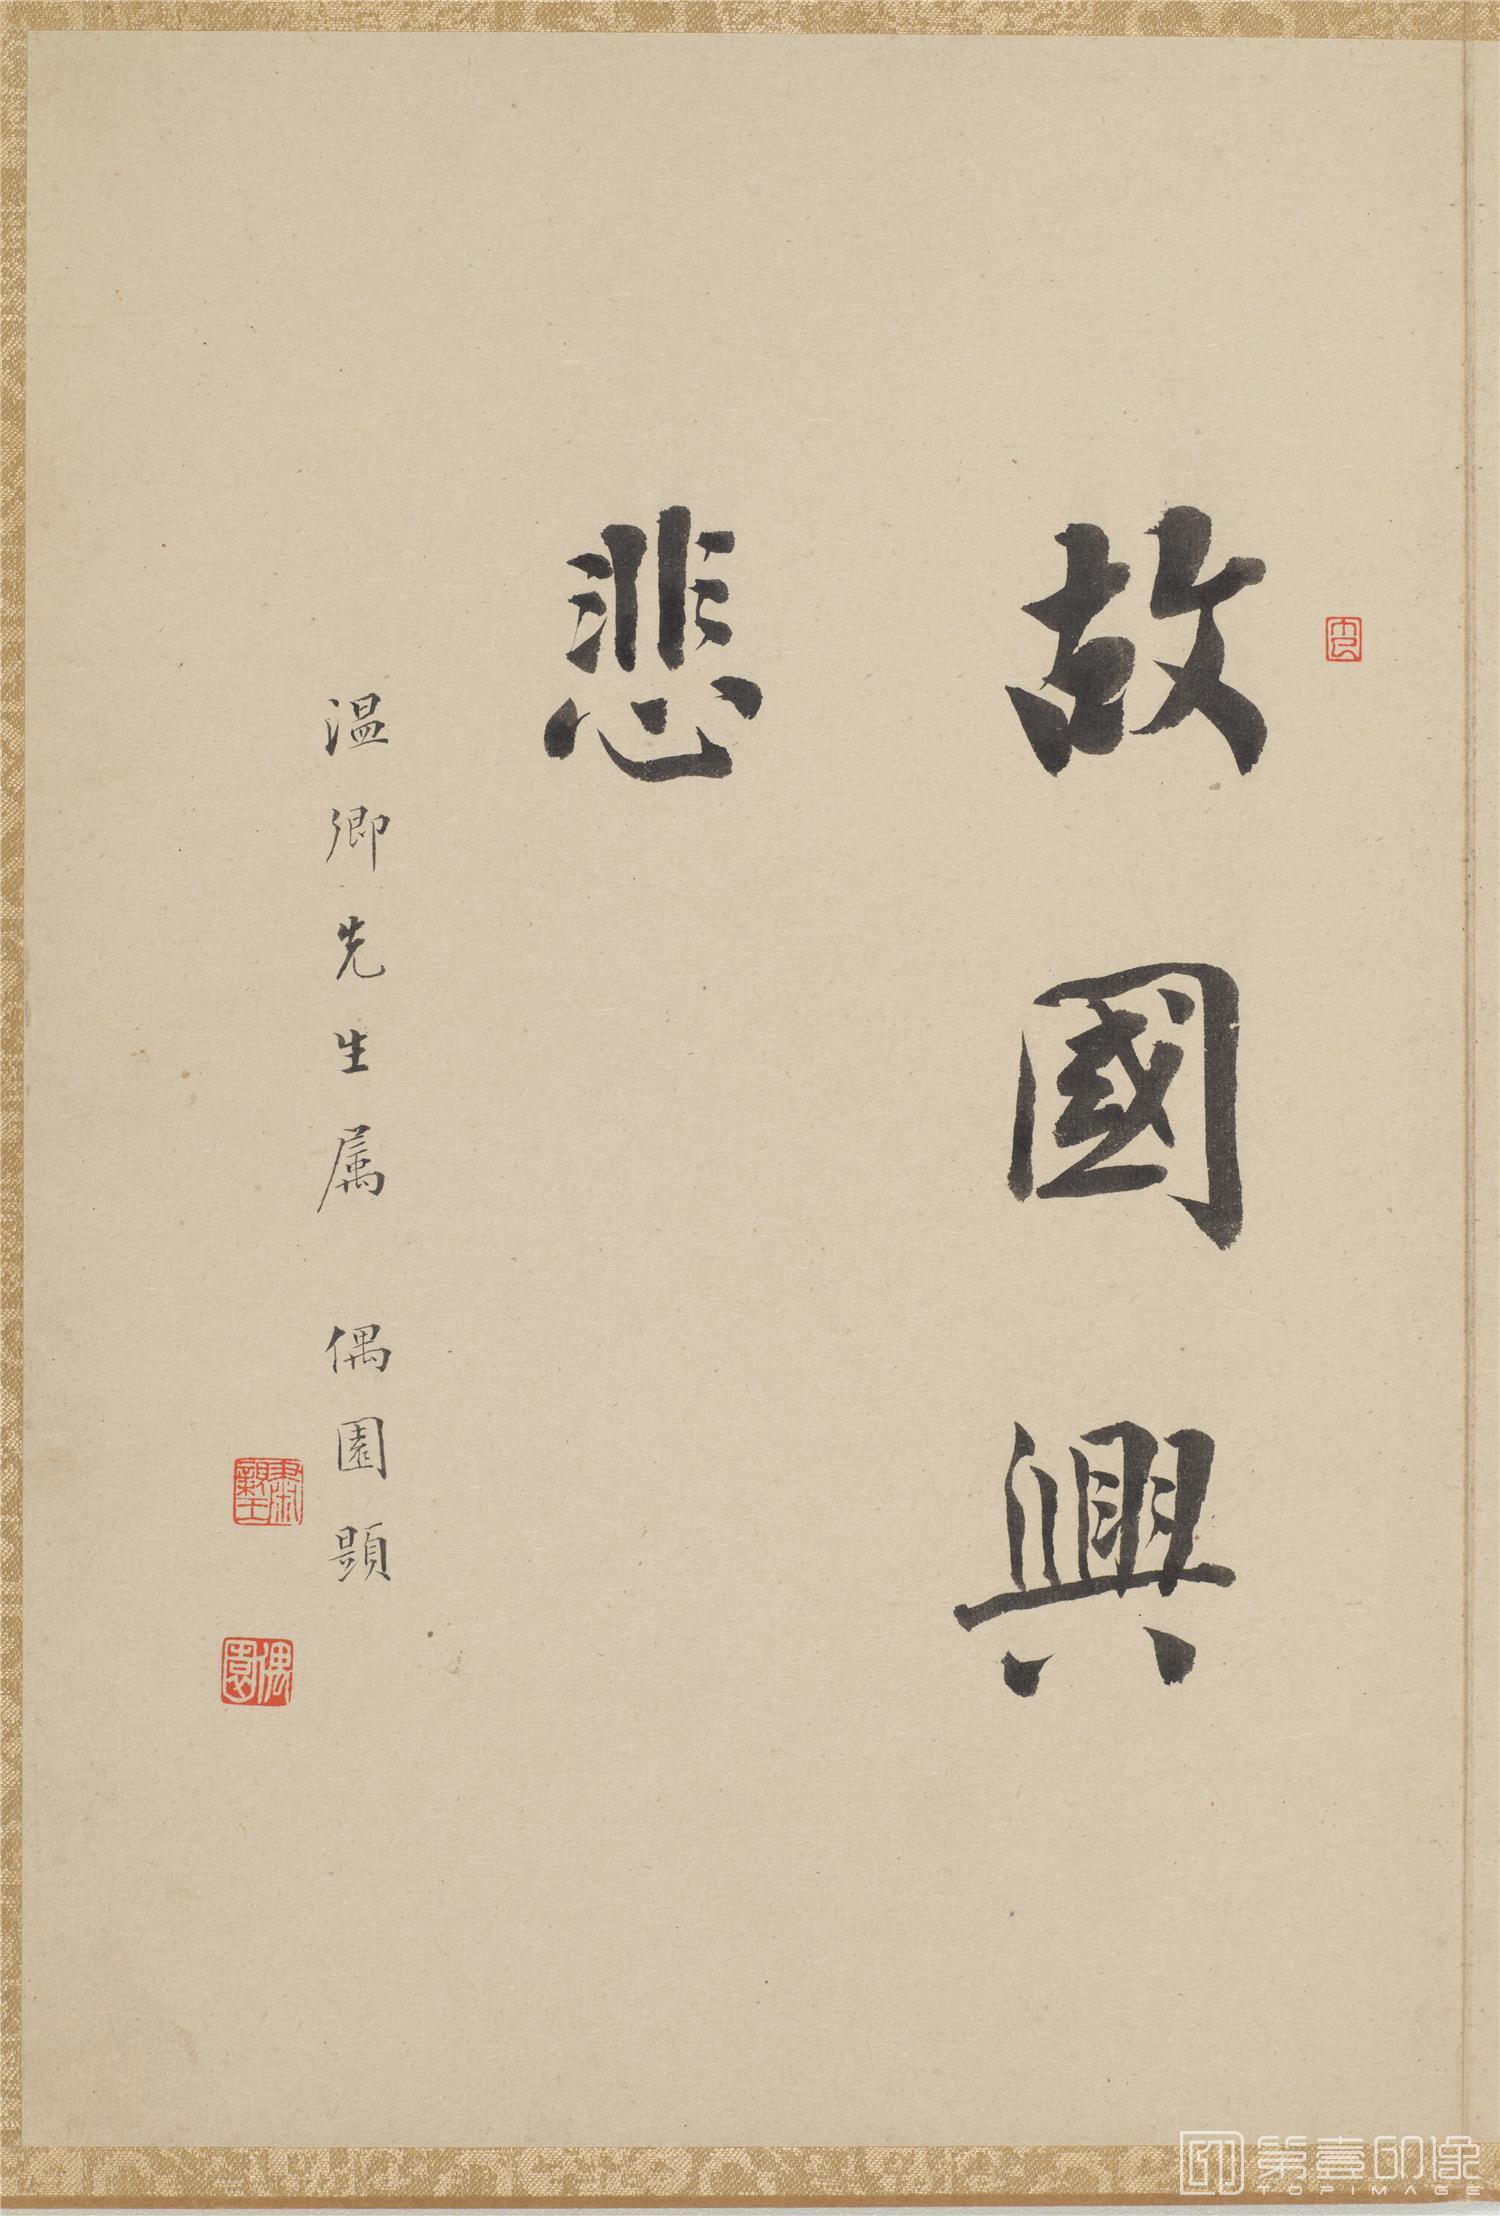 故國興
悲
溫卿先生属 偶園題
偶園
第壹印像
TOPIMAGE